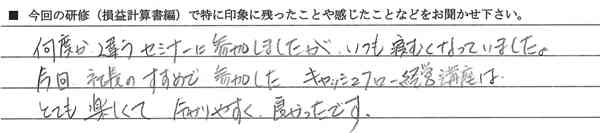 ■ 今回の研修（損益計算書編）で特に印象に残ったことや感じたことなどをお聞かせ下さい。
何度か違うセミナーに参加しましたが、いつも寝むくなっていました。
今回 社長のすすめで 参加した キャッシュフロー経営講座は
とても 楽しくて 分かりやすく、良かったです。